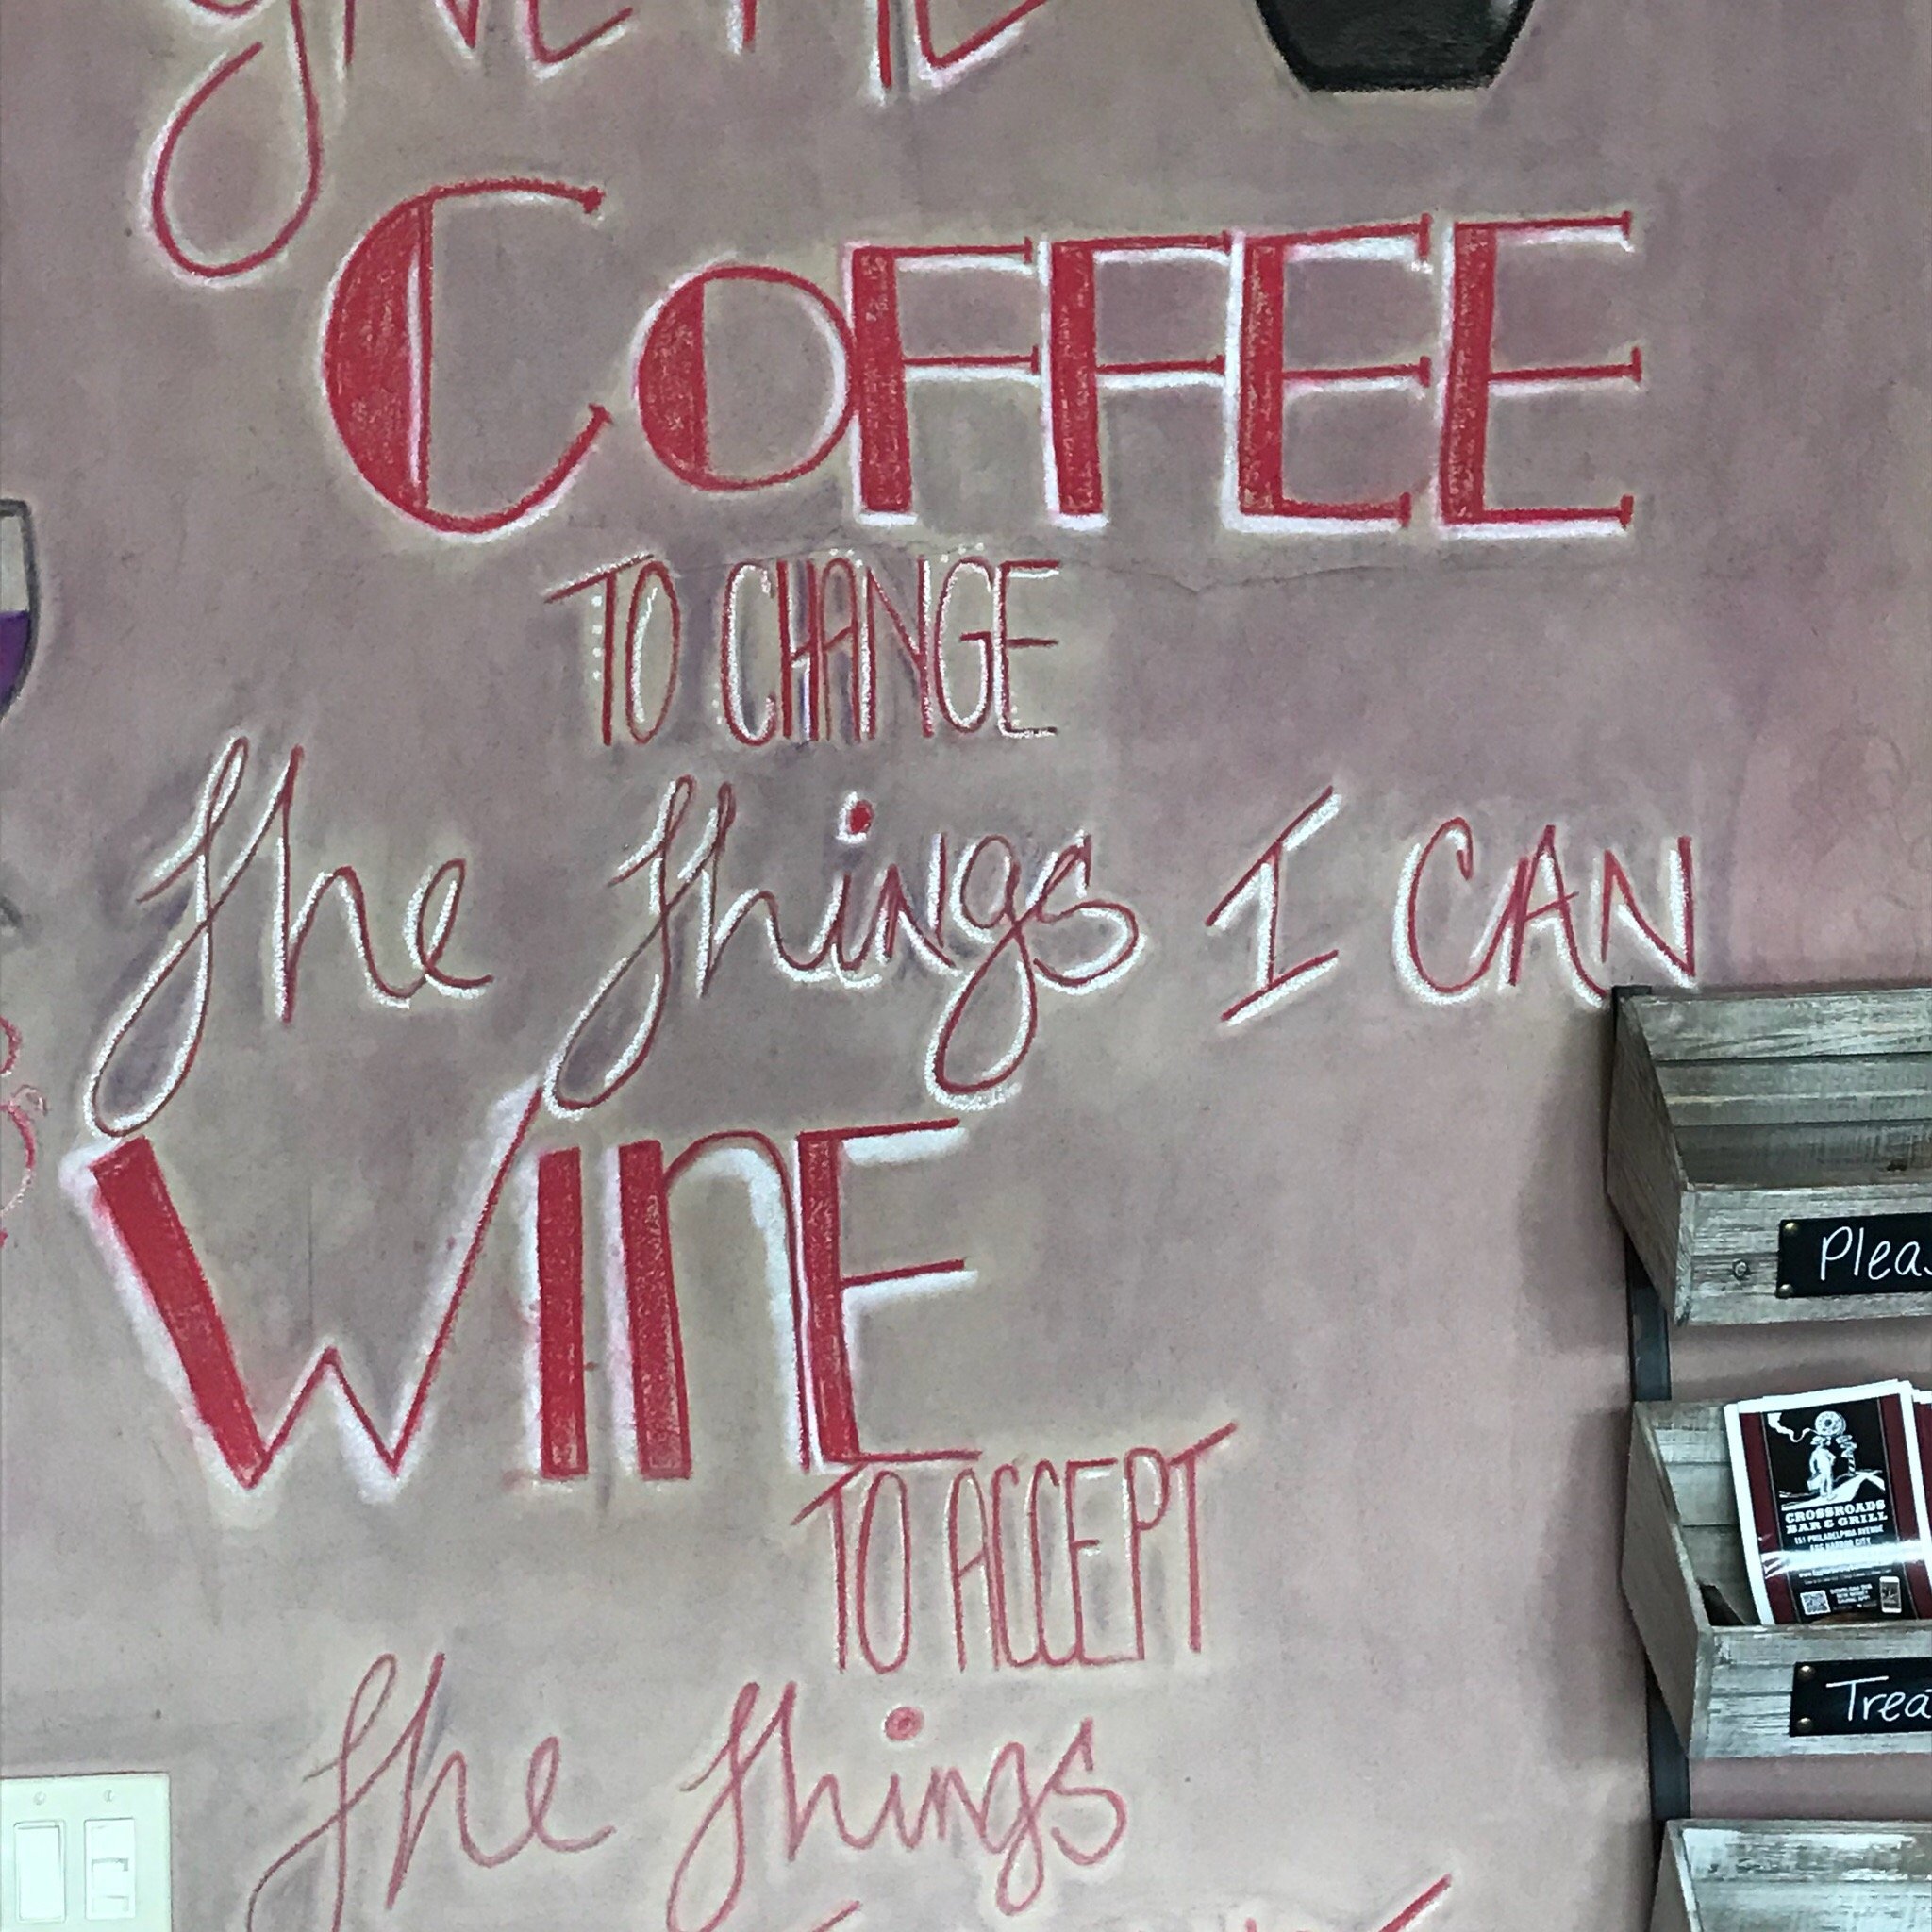 GIVE ME
COFFEE
TO CHANGE
The Things I CAN
WINE
TO ACCEPT
The Things
CROSSROADS
BAR & GRILL
151 PHILADELPHIA AVENUE
EGG HARBOR CITY